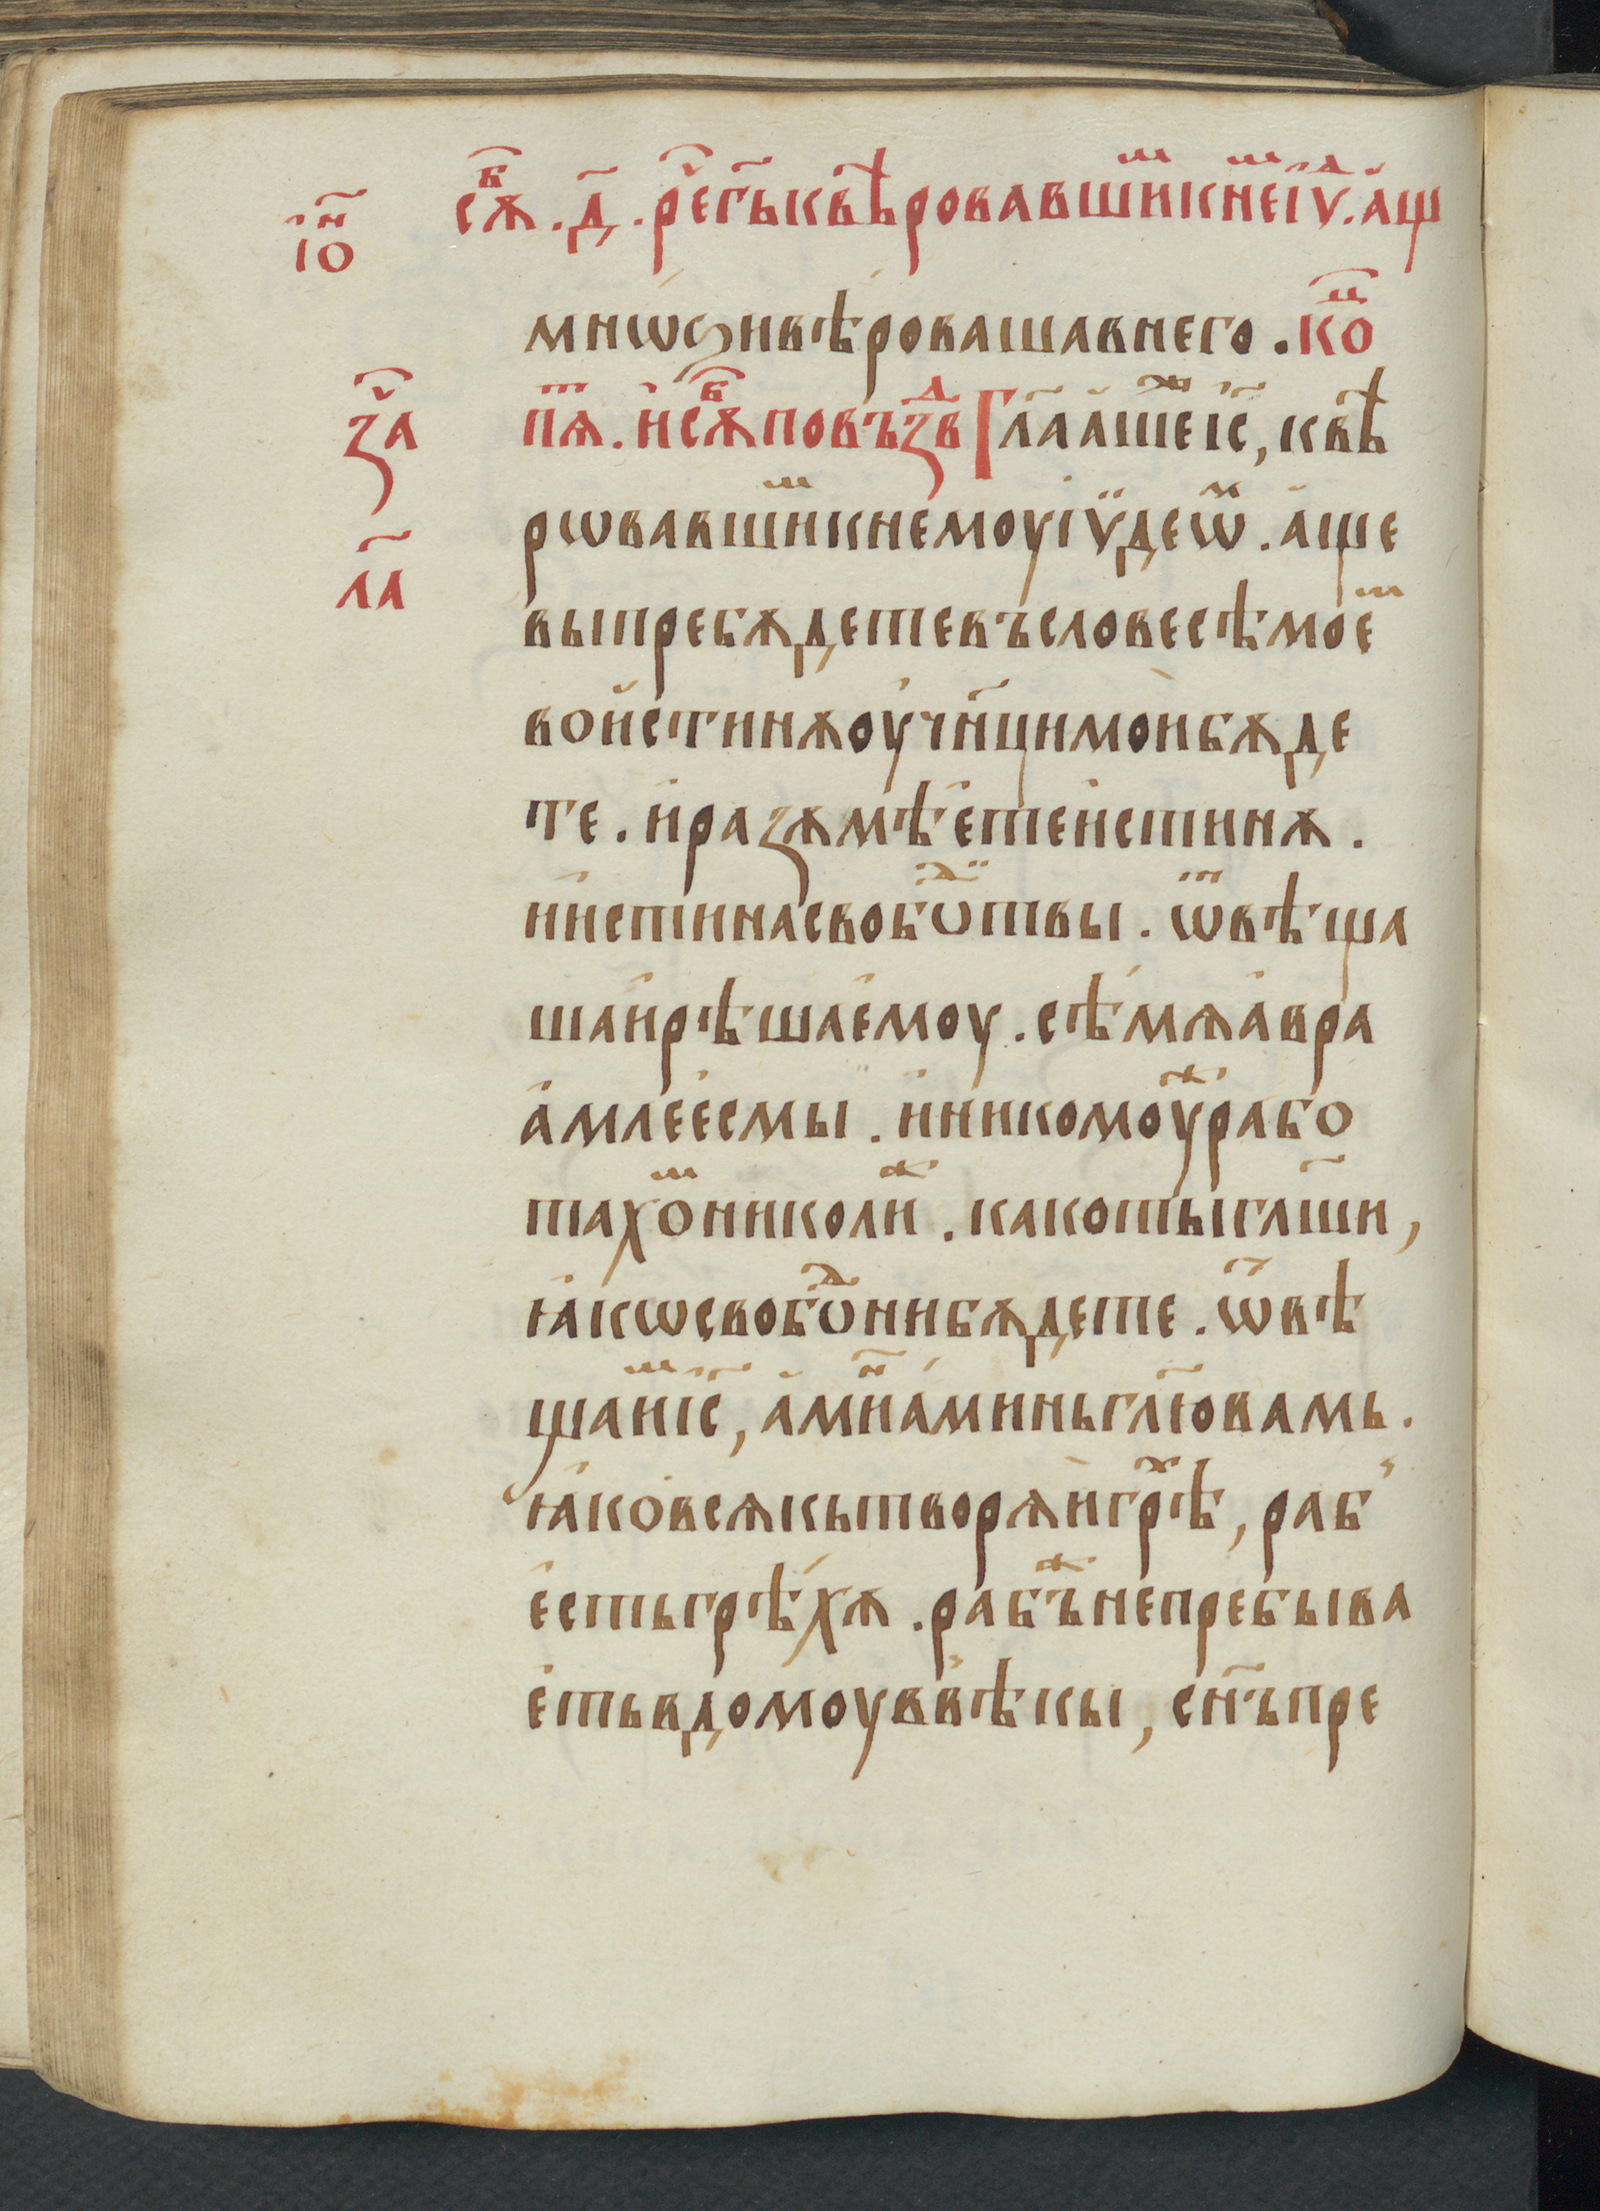 сѫⷠ҇ . д҃ . реⷱ҇ гь к вѣровавшиⷨ к неⷨ іꙋⷣ . аще
іѡⷩ҇
мнѡѕи вѣроваша в него . коⷰ҇
пⷮѧ . и сѫⷠ҇ по въꙁⷣв Гл҃ааше іс҃, к вѣ
ꙁаⷱ҇
рѡвавшиⷨ к немоу іѵдеѡⷨ . аще
л҃а
вы пребѫдете въ словесѣ моеⷨ
воистинѫ оучн҃ци мои бѫде
те . и разѫмѣете истинѫ .
и истина свобоⷣит вы . ѿвѣща
ша и рѣша емоу . сѣмѧ авра
амле есмы . и никомоуⷤ рабо
тахоⷨ николиⷤ . како ты гл҃ши,
ꙗко свобоⷣни бѫдете . ѿвѣ
ща иⷨ іс҃, амиⷩ҇ аминь гл҃ю вамь .
ꙗко всѧкь творѧи грѣⷯ, раб
есть грѣхѫ . рабъⷤ не пребыва
еть в домоу в вѣкы, сн҃ъ пре